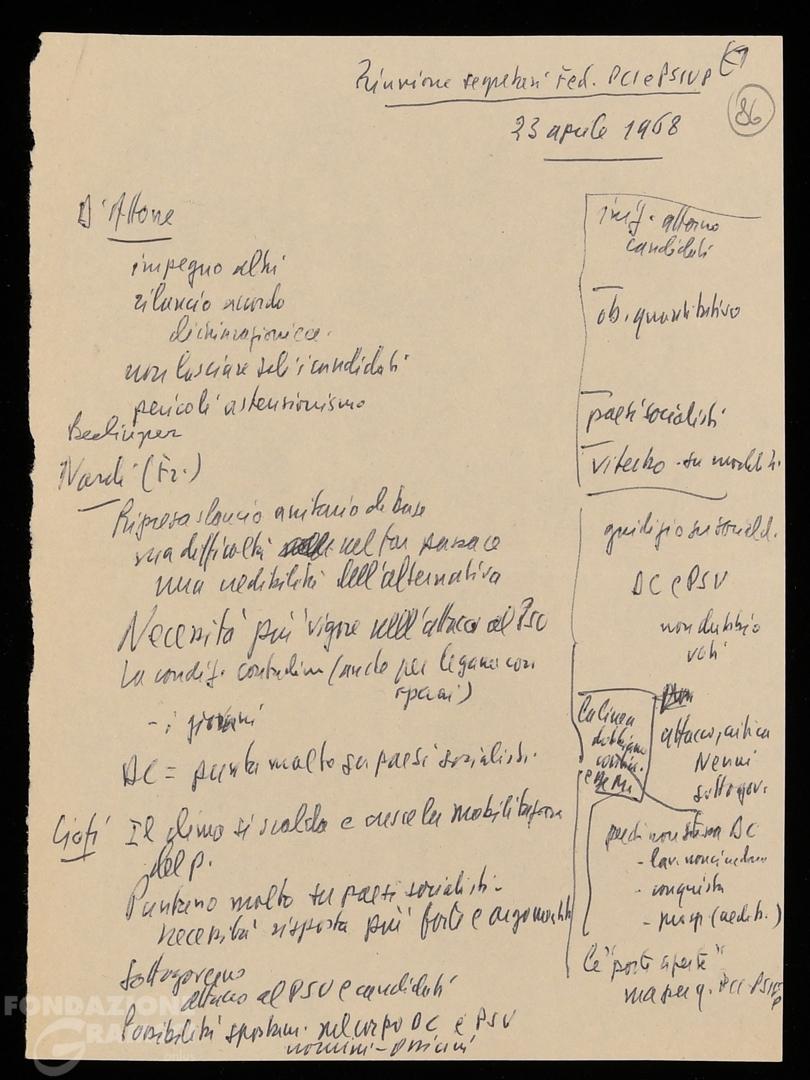 Riunione segretari Fed. PCI e PSIUP
86
23 aprile 1968
D'Attorre
impegno altri
rilancio accordo
non lasciare soli i candidati
pericoli astensionismo
Berlinguer
Nardi (Fr.)
Ripresa slancio unitario di base
ma difficoltà nel far passare
una credibilità dell'alternativa
Necessità più vigore nell'attacco al PSU
La condiz. contadina (anche per legame con
operai)
- i giovani
DC = punta molto su paesi socialisti.
Ciofi Il clima si scalda e cresce la mobilitazione
del p.
Puntano molto su paesi socialisti -
necessità risposta più forte e argomentata
Sottogoverno
attacco al PSU e candidati
Possibilità spostam. nel corpo DC e PSU
uomini - 
imp. attorno
candidati
ob. quantitativo
paesi socialisti
Viterbo - su
giudizio su sociald.
DC e PSU
non dubbio
voti
La linea
dobbiamo
attacco, critica
Nenni
sottogov.
DC
- lav.
- conquista
- (credib.)
Le "porte aperte"
ma per q. PCI-PSIUP
FONDAZIONE
GRAMSCI